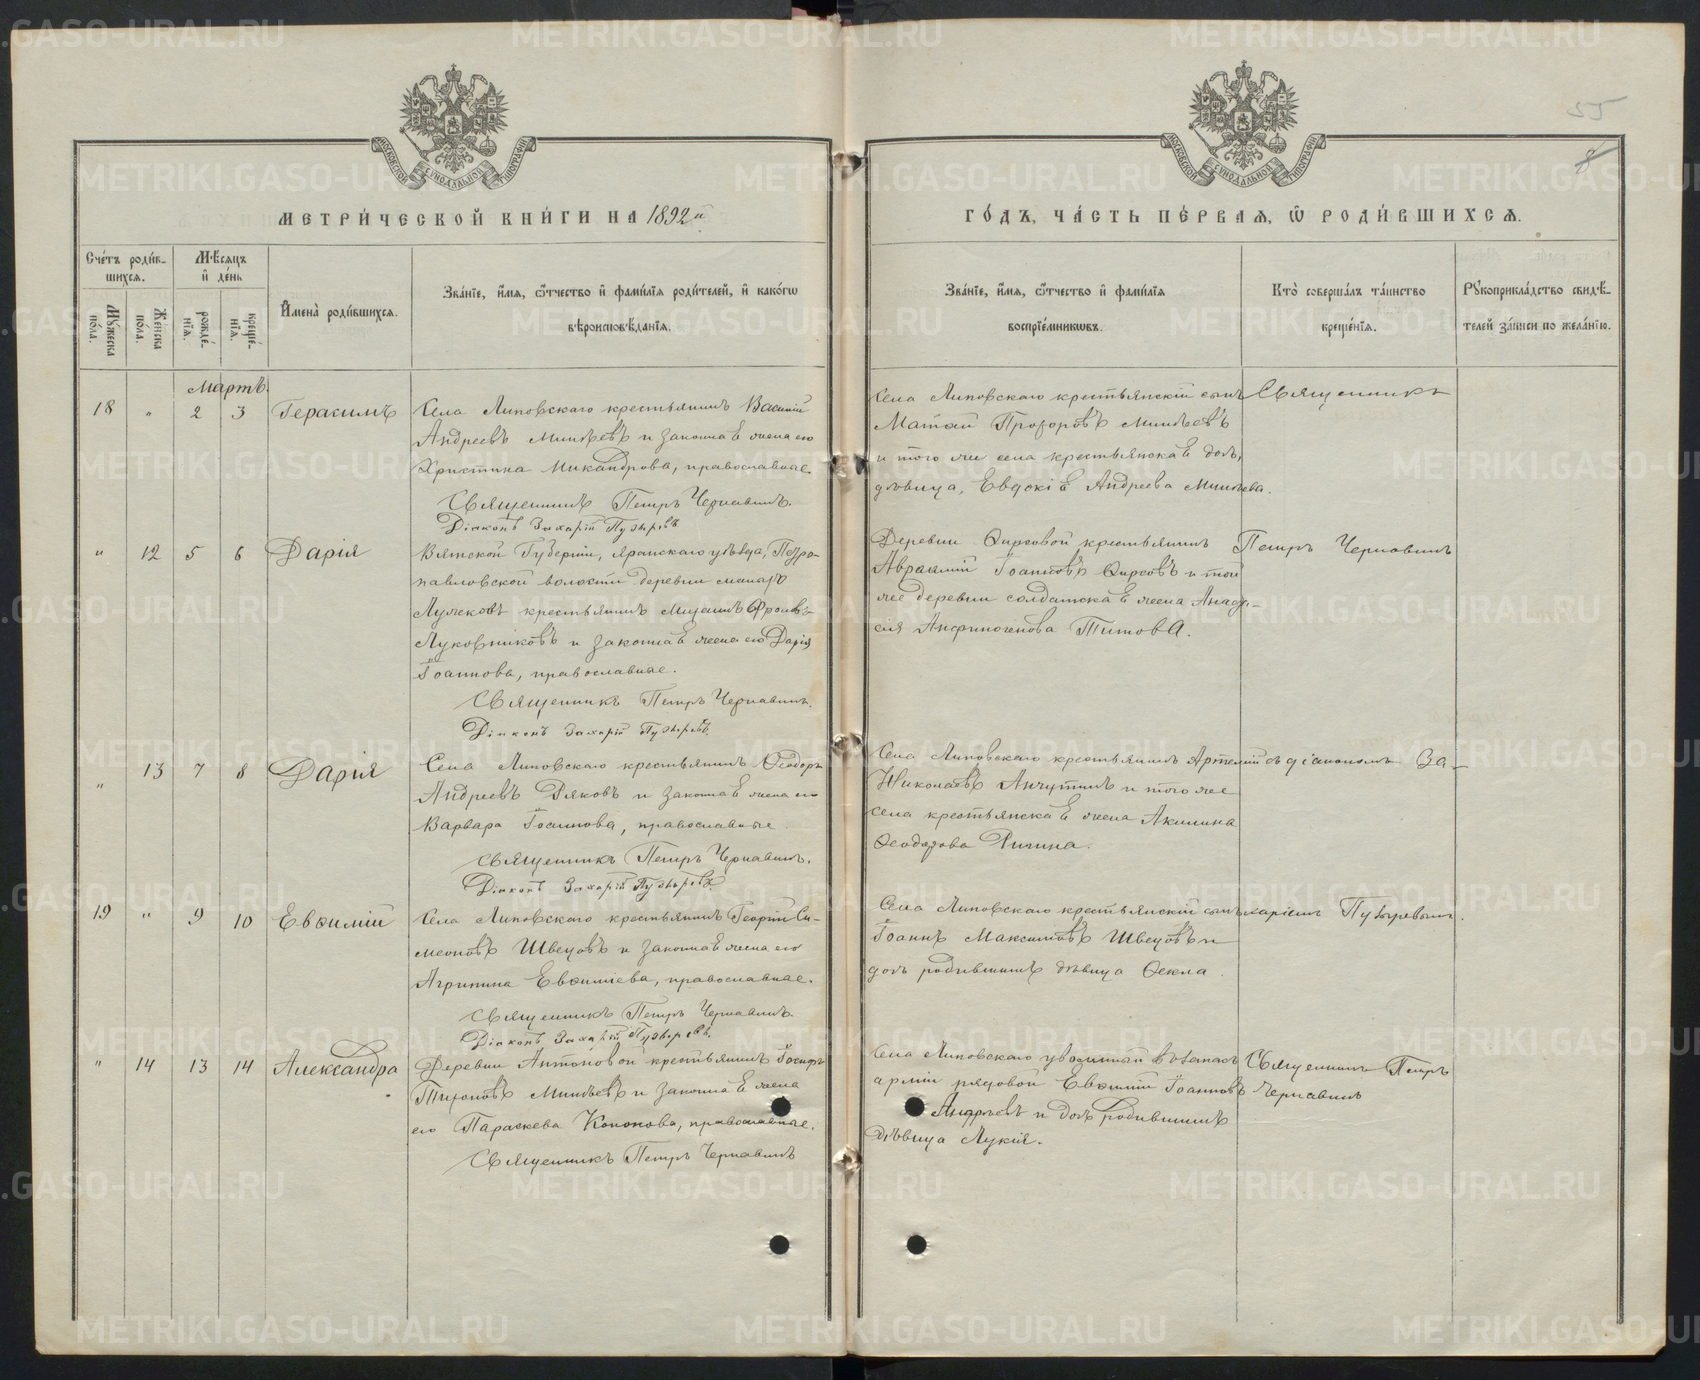 55
8
МОСКОВСКОЙ СѴНОДАЛЬНОЙ ТИПОГРАФІИ
МОСКОВСКОЙ СѴНОДАЛЬНОЙ ТИПОГРАФІИ
МЕТРИ́ЧЕСКОЙ КНИ́ГИ НА 1892й
ГО́ДЪ, ЧА́СТЬ ПЕ́РВАѦ, Ѿ РОДИ́ВШИХСѦ.
Сче́тъ роди́в-
шихсѧ.
Му́жеска по́ла.
Же́нска по́ла.
Мѣ́сѧцъ
и҆ де́нь
рожде́-
нїѧ.
креще́-
нїѧ.
И҆мена̀ роди́вшихсѧ.
Зва́нїе, и҆́мѧ, ѻ҆́тчество и҆ фами́лїѧ роди́телей, и҆ како́гѡ
вѣроисповѣ́данїѧ.
Зва́нїе, и҆́мѧ, ѻ҆́тчество и҆ фами́лїѧ
воспрїе́мникѡвъ.
Кто̀ соверша́лъ та́инство
креще́нїѧ.
Рꙋкоприкла́дство свидѣ́-
телей за́писи по жела́нїю.
Мартъ.
18 " 2 3 Герасимъ
Села Липовскаго крестьянинъ Василій
Андреевъ Минѣевъ и законная жена его
Христина Никандрова, православные.
Священникъ Петръ Чернавинъ.
Діаконъ Захарій Пузыревъ
Села Липовскаго крестьянскій сынъ
Матѳій Прохоровъ Минѣевъ
и того же села крестьянская дочь,
дѣвица, Евдокія Андреева Минѣева.
Священникъ
" 12 5 6 Дарія
Вятской Губерніи, Яранскаго уѣзда, Петро-
павловской волости деревни
крестьянинъ
Луковниковъ и законная жена его Дарія
Іоаннова, православные.
Священникъ Петръ Чернавинъ.
Діаконъ Захарій Пузыревъ.
Деревни Фирсовой крестьянинъ
Авраамій Іоанновъ Фирсовъ и той
же деревни солдатская жена Анаста-
сія Анфиногенова Титова.
Петръ Чернавинъ
" 13 7 8 Дарія
Села Липовскаго крестьянинъ Ѳеодоръ
Андреевъ Ряковъ и законная жена его
Варвара Іоаннова, православные.
Священникъ Петръ Чернавинъ.
Діаконъ Захарій Пузыревъ.
Села Липовскаго крестьянинъ Артемій
Николаевъ Анчутинъ и того же
села крестьянская жена Акилина
Ѳеодорова
съ діакономъ За-
19 " 9 10 Евѳимій
Села Липовскаго крестьянинъ Георгій Си-
меоновъ Швецовъ и законная жена его
Агрипина Евѳиміева, православные.
Священникъ Петръ Чернавинъ.
Діаконъ Захарій Пузыревъ.
Села Липовскаго крестьянскій сынъ
Іоаннъ Максимовъ Швецовъ и
дочь родившимъ дѣвица Ѳекла.
харіемъ Пузыревымъ.
" 14 13 14 Александра
Деревни Антоновой крестьянинъ Іосифъ
Тихоновъ Минѣевъ и законная жена
его Параскева Кононова, православные.
Священникъ Петръ Чернавинъ
Села Липовскаго уволенный въ запасъ
арміи рядовой Евѳимій Іоанновъ
Андреевъ и дочь родившимъ
дѣвица Лукія.
Священникъ Петръ
Чернавинъ
METRIKI.GASO-URAL.RU